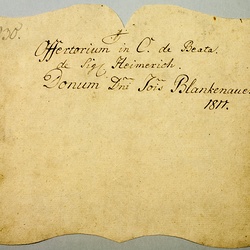 930.
Offertorium in C. de Beata.
de Sigl Heimerich.
Donum Dni Jois Blankenauer
1817.